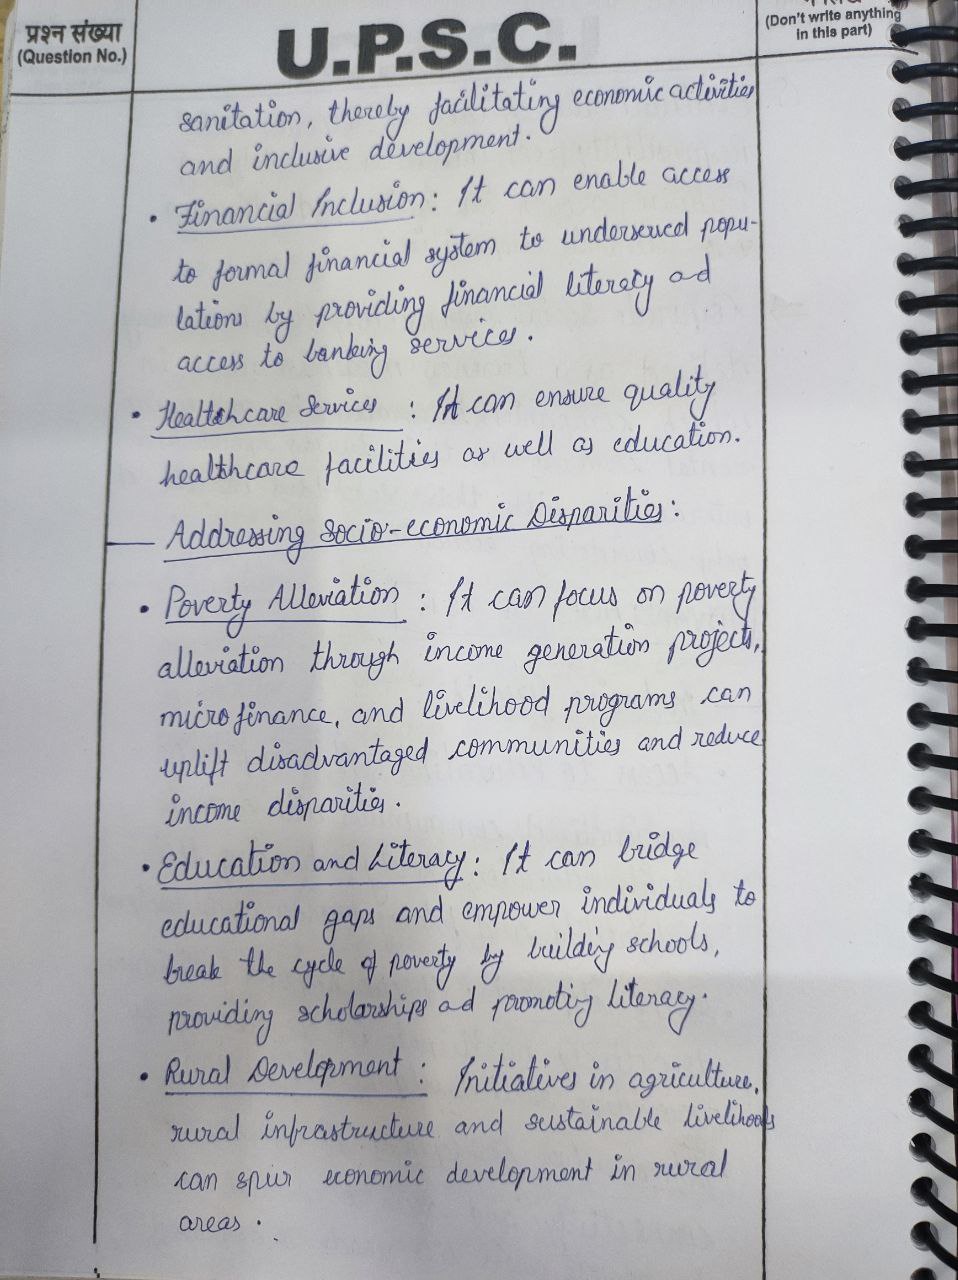 प्रश्न संख्या
(Question No.)
U.P.S.C.
(Don't write anything
in this part)
sanitation, thereby facilitating economic activities
and inclusive development.
• Financial Inclusion: It can enable access
to formal financial system to underserved popu-
lations by providing financial literacy ad
access to banking services.
• Healthcare Services : It can ensure quality
healthcare facilities as well as education.
Addressing Socio-economic Disparities:
• Poverty Alleviation : It can focus on poverty
alleviation through income generation projects,
microfinance, and livelihood programs can
uplift disadvantaged communities and reduce
income disparities.
• Education and Literacy: It can bridge
educational gaps and empower individuals to
break the cycle of poverty by building schools,
providing scholarships ad promoting literacy.
• Rural Development : Initiatives in agriculture,
rural infrastructure and sustainable livelihoods
can spur economic development in rural
areas.